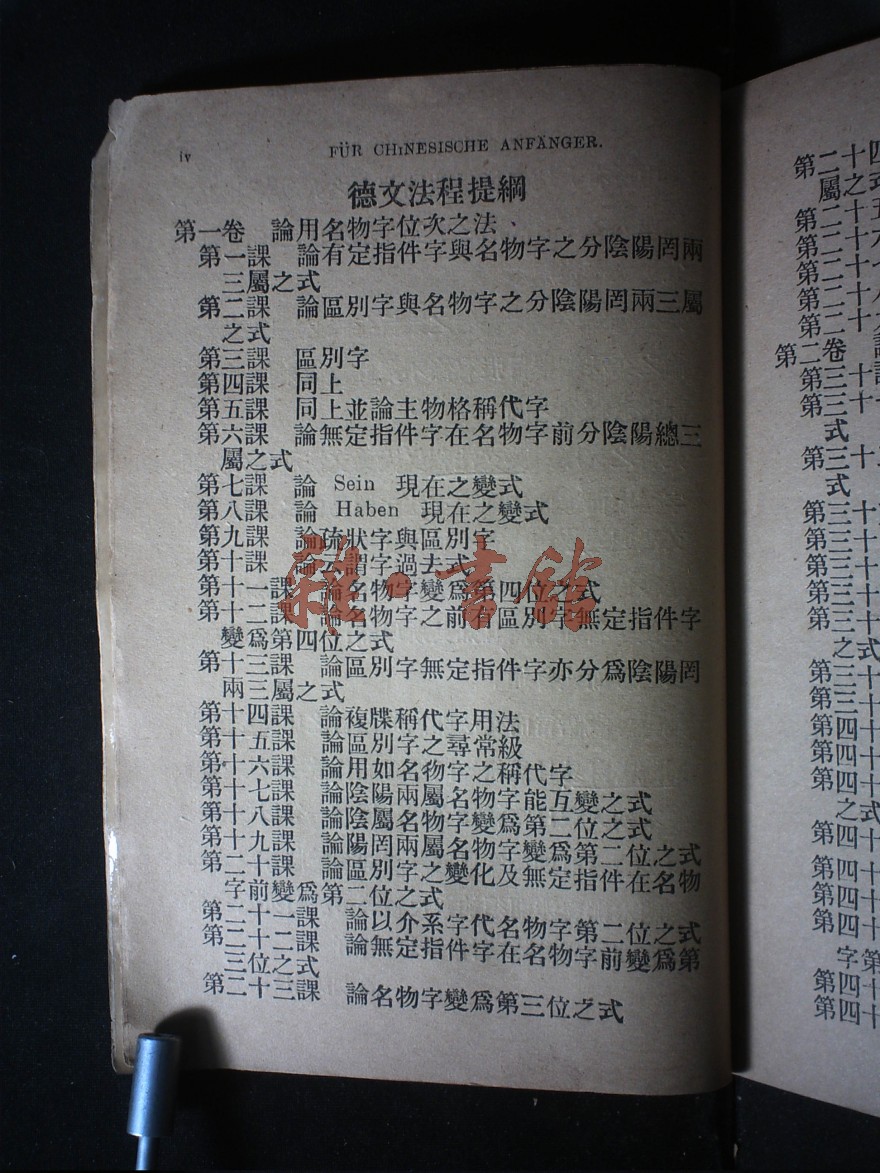 iv FÜR CHINESISCHE ANFÄNGER.
德文法程提綱
第一卷 論用名物字位次之法
第一課 論有定指件字與名物字之分陰陽罔兩
三屬之式
第二課 論區別字與名物字之分陰陽罔兩三屬
之式
第三課 區別字
第四課 同上
第五課 同上並論主物格稱代字
第六課 論無定指件字在名物字前分陰陽總三
屬之式
第七課 論 Sein 現在之變式
第八課 論 Haben 現在之變式
第九課 論疏狀字與區別字
第十課 論云謂字過去式
第十一課 論名物字變爲第四位之式
第十二課 論名物字之前有區別字無定指件字
變爲第四位之式
第十三課 論區別字無定指件字亦分爲陰陽罔
兩三屬之式
第十四課 論複牒稱代字用法
第十五課 論區別字之尋常級
第十六課 論用如名物字之稱代字
第十七課 論陰陽兩屬名物字能互變之式
第十八課 論陰屬名物字變爲第二位之式
第十九課 論陽罔兩屬名物字變爲第二位之式
第二十課 論區別字之變化及無定指件在名物
字前變爲第二位之式
第二十一課 論以介系字代名物字第二位之式
第二十二課 論無定指件字在名物字前變爲第
三位之式
第二十三課 論名物字變爲第三位之式
雜·書館
第二十四
屬之式
第二十五
第二十六
第二十七
第二十八
第二十九
第二卷
第三十
第三十一
式
第三十二
式
第三十
第三十
第三十
第三十
第三十
之式
第三十
第三十
第四十
第四十
第四十
之式
第四十
第四十
第四十
第四十
字第
第四十
第四十